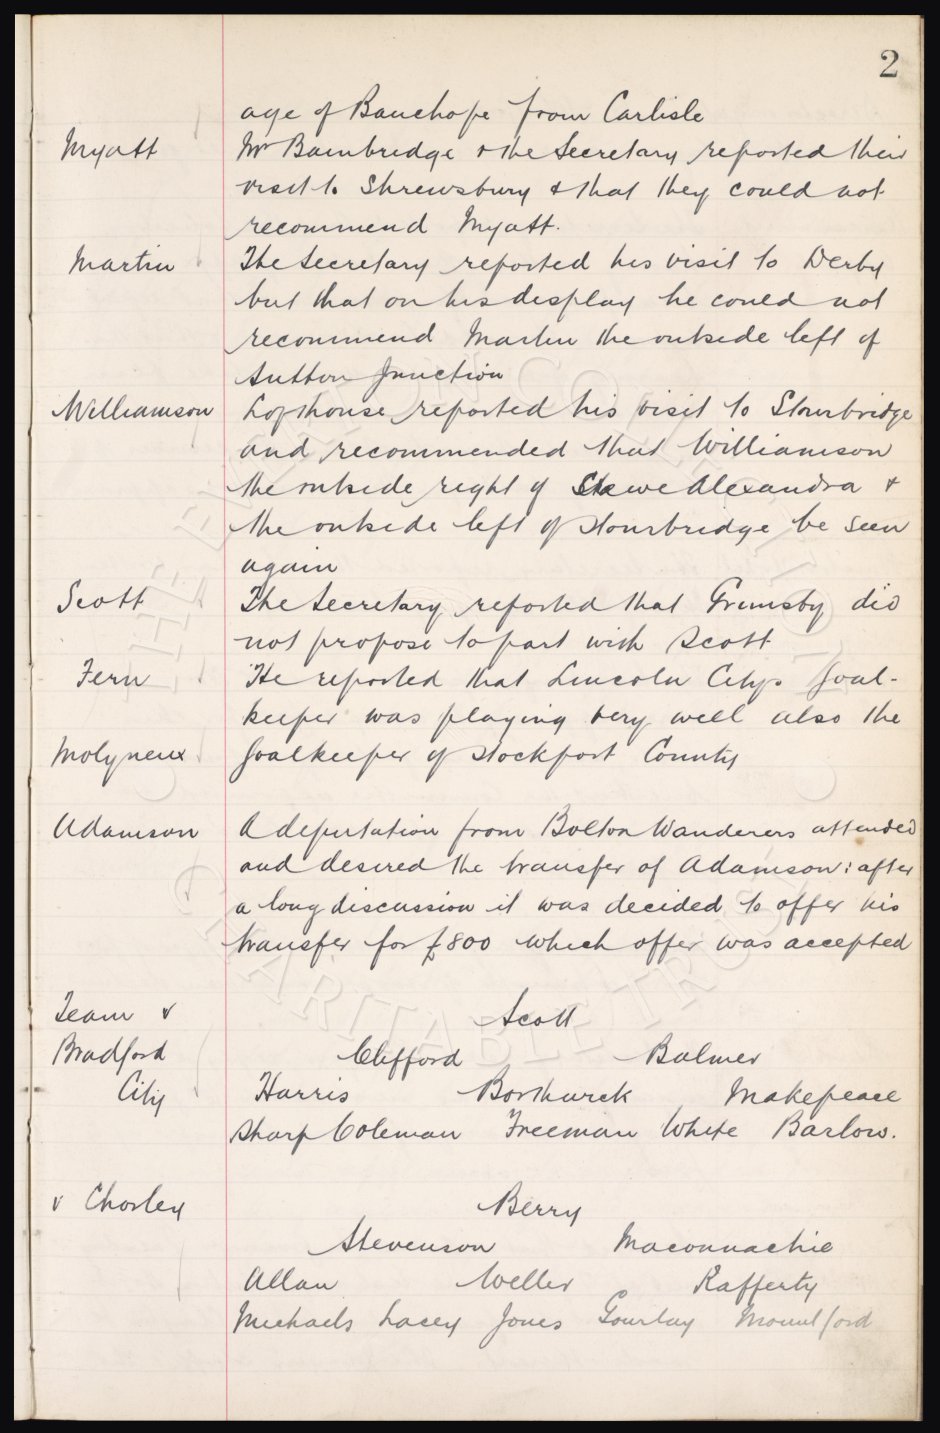 2
age of Bauchope from Carlisle
Myatt Mr Bainbridge & the Secretary reported their
visit to Shrewsbury & that they could not
recommend Myatt.
Martin The Secretary reported his visit to Derby
but that on his display he could not
recommend Martin the outside left of
Sutton Junction
Williamson Lofthouse reported his visit to Stourbridge
and recommended that Williamson
the outside right of Crewe Alexandra &
the outside left of Stourbridge be seen
again
Scott The Secretary reported that Grimsby did
not propose to part with Scott
Fern He reported that Lincoln Citys Goal-
keeper was playing very well also the
Molyneux Goalkeeper of Stockport County
Adamson A deputation from Bolton Wanderers attended
and desired the transfer of Adamson: after
a long discussion it was decided to offer his
transfer for £800 which offer was accepted
Team v Scott
Bradford Clifford Balmer
City Harris Borthwick Makepeace
Sharp Coleman Freeman White Barlow.
v Chorley Berry
Stevenson Maconnachie
Allan Weller Rafferty
Michaels Lacey Jones Gourlay Mountford
THE EVERTON COLLECTION
CHARITABLE TRUST